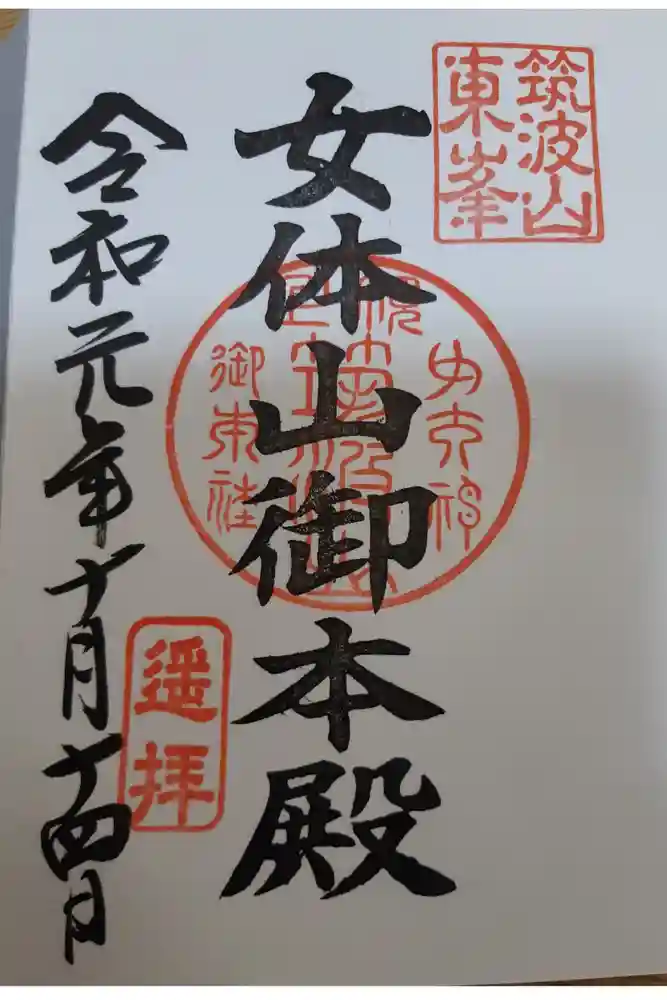 筑波山
東峯
女体山御本殿
御本社
遥拝
令和元年十月十四日